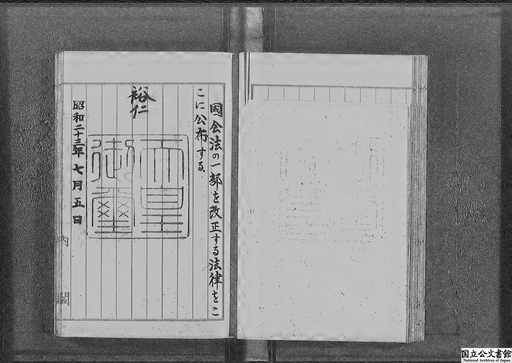 国会法の一部を改正する法律をこ
こに公布する。
裕仁
天皇
御璽
昭和二十三年七月五日
内閣
国立公文書館
National Archives of Japan